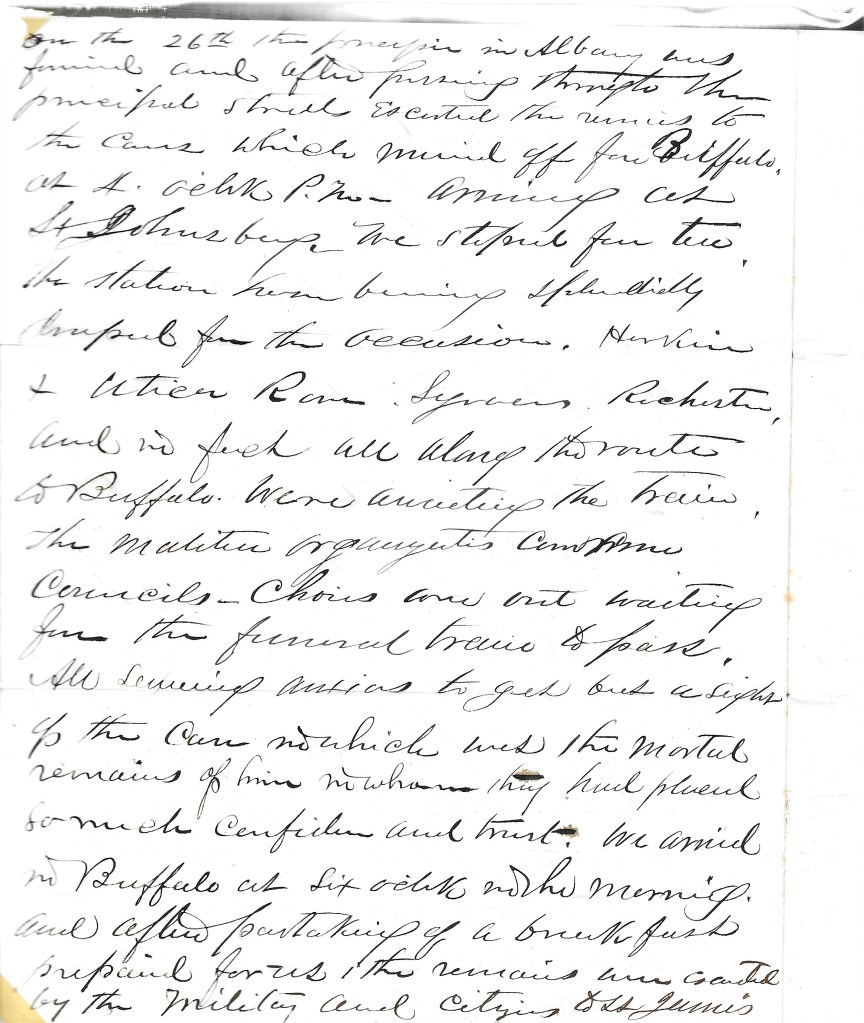 On the 26th the procession in Albany was
formed and after passing through the
principal streets Escorted the remains to
the Cars which moved off for Buffalo.
at 4. oclk P.M. arriving at
St Johnsburg. We stoped for tea,
the station room being splendidly
draped for the occasion. Herkimer
+ Utica Rome. Syracuse. Rochester,
and in fact all along the route
to Buffalo. Were awaiting the train,
the Common
Councils - Choirs were out waiting
for the funeral train to pass.
All seeming anxious to get but a sight
of the Car in which was the mortal
remains of him in whom they had placed
so much confidence and trust. We arrived
in Buffalo at six oclk in the morning.
and after partaking of a breakfast
prepared for us, the remains were escorted
by the military and citizens to St James